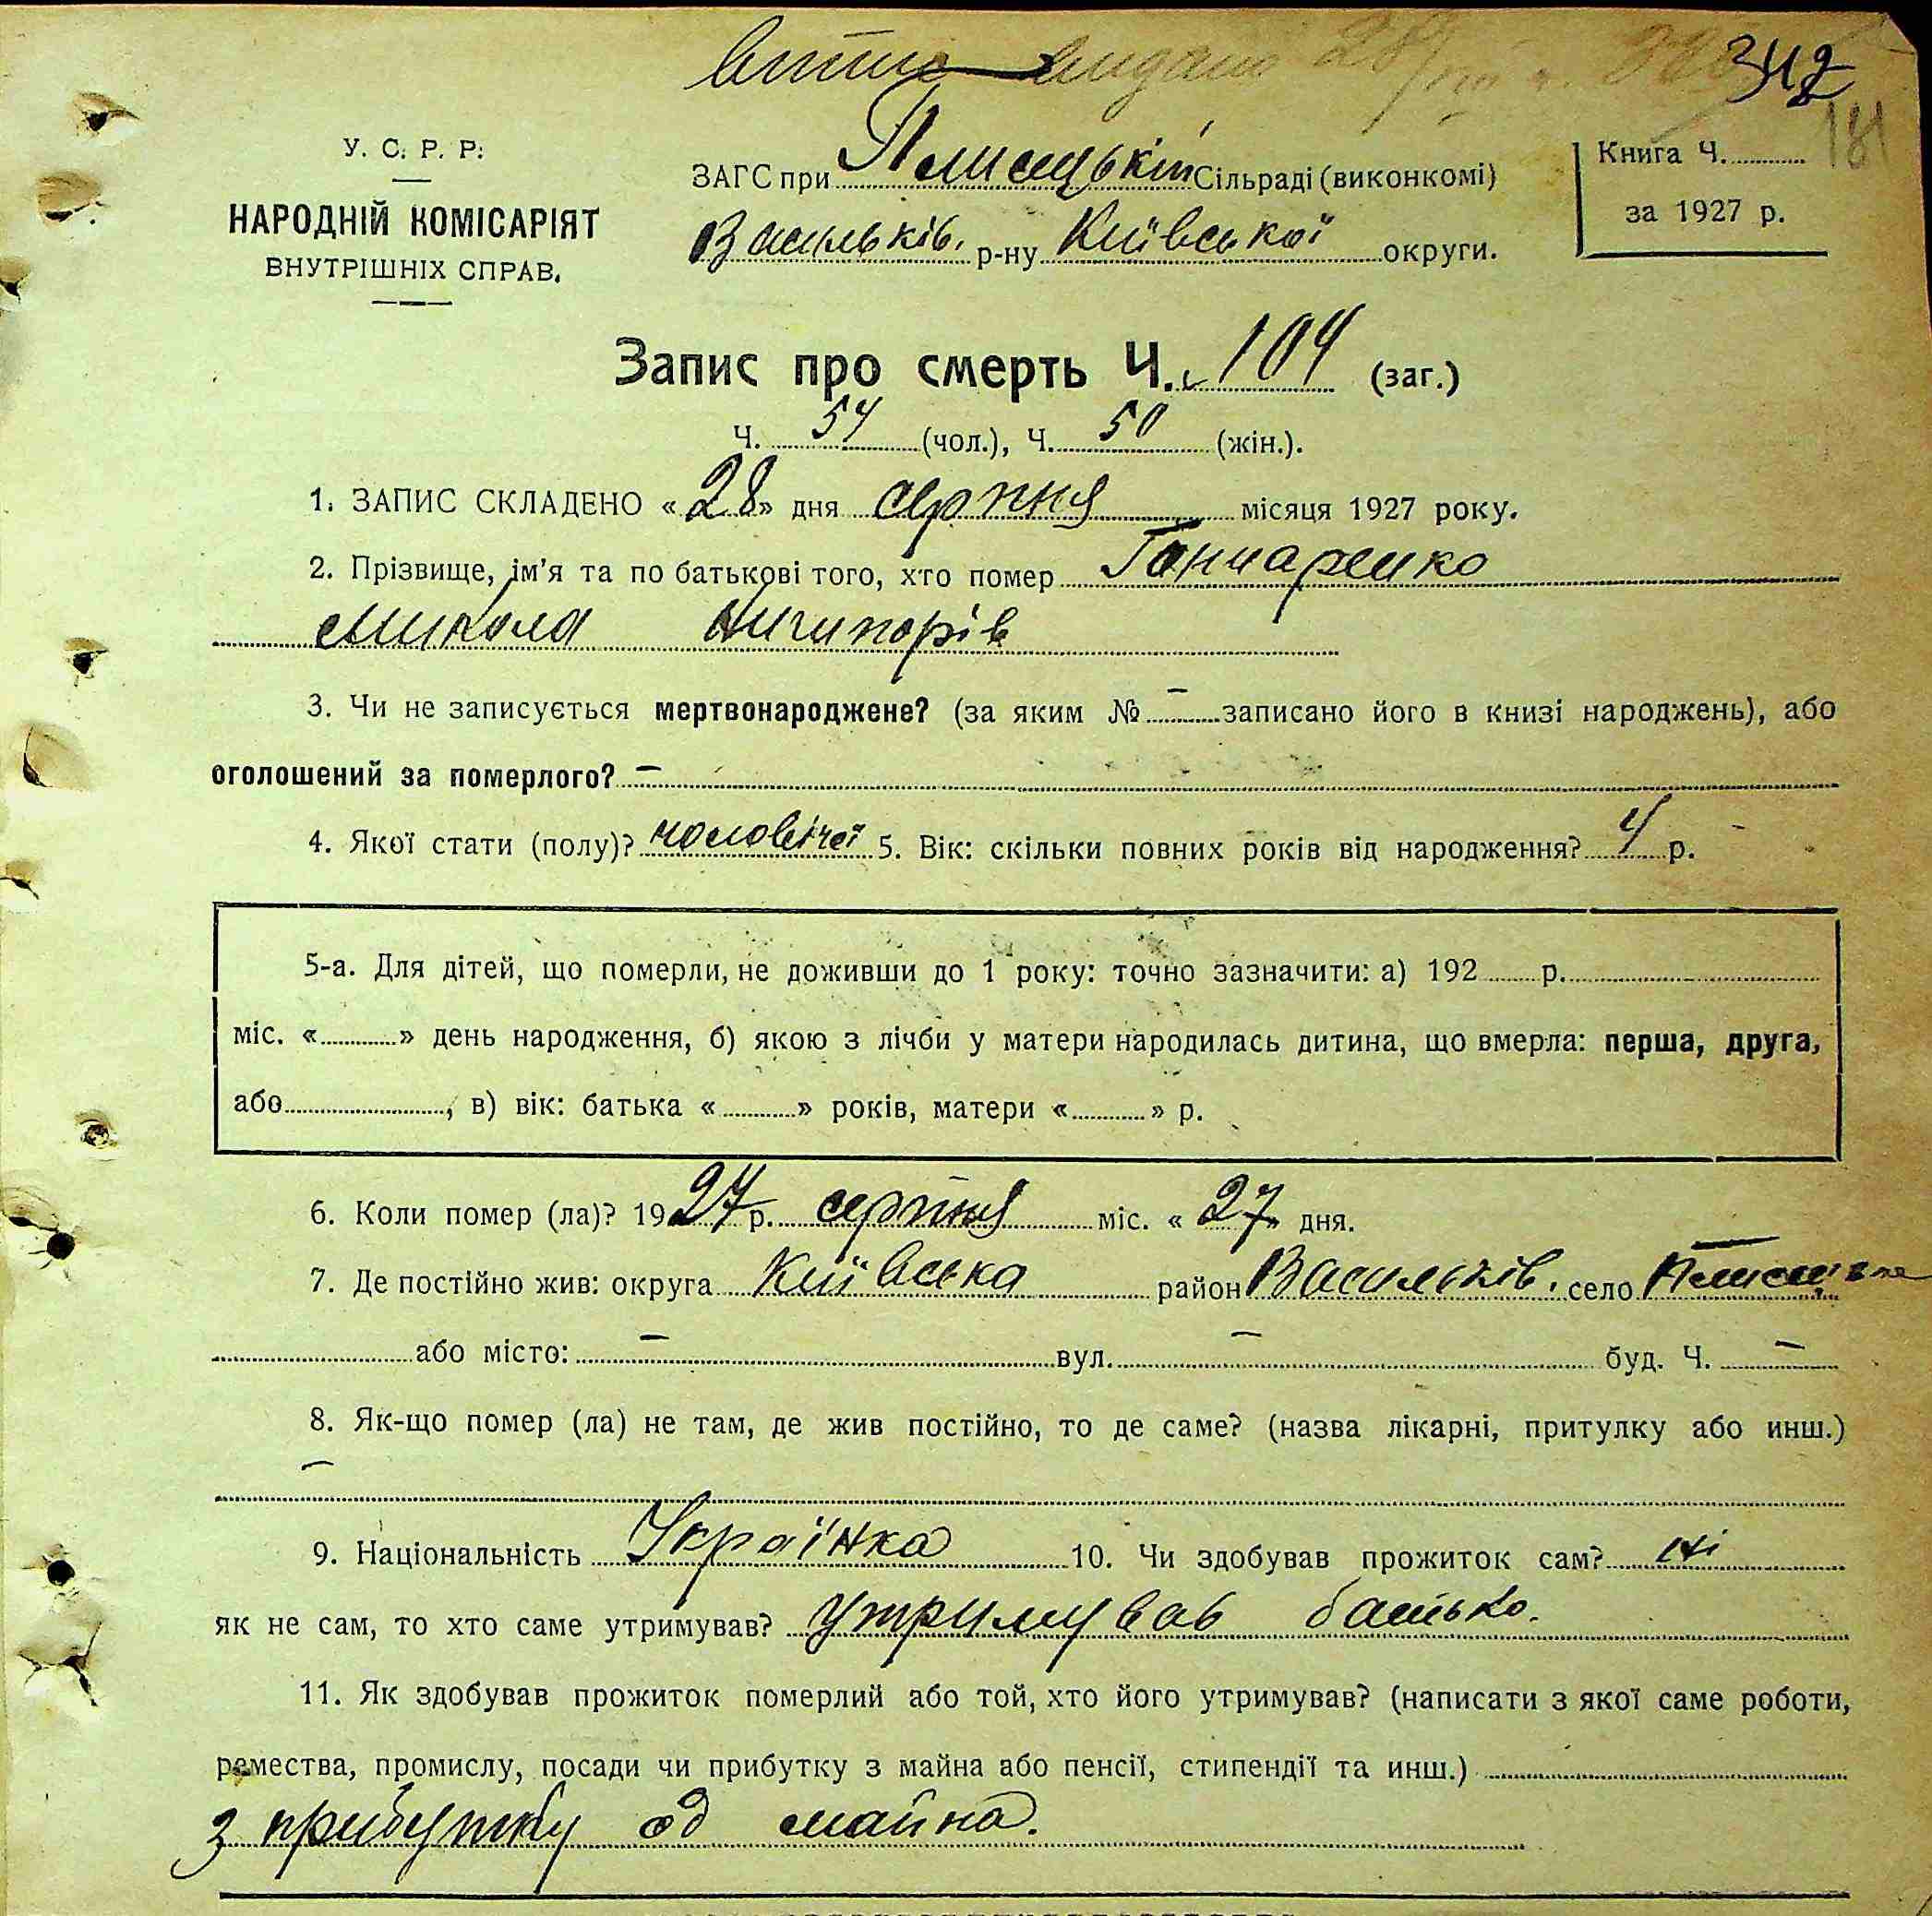 витис видано 28/
342
181
У. С. Р. Р.
НАРОДНІЙ КОМІСАРІЯТ
ВНУТРІШНІХ СПРАВ.
ЗАГС при Плисецькій Сільраді (виконкомі)
Васильків. р-ну Київської округи.
Книга Ч.
за 1927 р.
Запис про смерть Ч. 104 (заг.)
Ч. 54 (чол.), Ч. 50 (жін.).
1. ЗАПИС СКЛАДЕНО «28» дня серпня місяця 1927 року.
2. Прізвище, ім'я та по батькові того, хто помер Гончаренко
Микола Ничипорів
3. Чи не записується мертвонароджене? (за яким № — записано його в книзі народжень), або
оголошений за померлого? —
4. Якої стати (полу)? чоловічої 5. Вік: скільки повних років від народження? 4 р.
5-а. Для дітей, що померли, не доживши до 1 року: точно зазначити: а) 192 р.
міс. « » день народження, б) якою з лічби у матери народилась дитина, що вмерла: перша, друга,
або , в) вік: батька « » років, матери « » р.
6. Коли помер (ла)? 1927 р. серпня міс. «27» дня.
7. Де постійно жив: округа Київська район Васильків. село
або місто: — вул. — буд. Ч. —
8. Як-що помер (ла) не там, де жив постійно, то де саме? (назва лікарні, притулку або инш.)
—
9. Національність Українка 10. Чи здобував прожиток сам? ні
як не сам, то хто саме утримував? утримував батько.
11. Як здобував прожиток померлий або той, хто його утримував? (написати з якої саме роботи,
ремества, промислу, посади чи прибутку з майна або пенсії, стипендії та инш.)
з прибутку од майна.